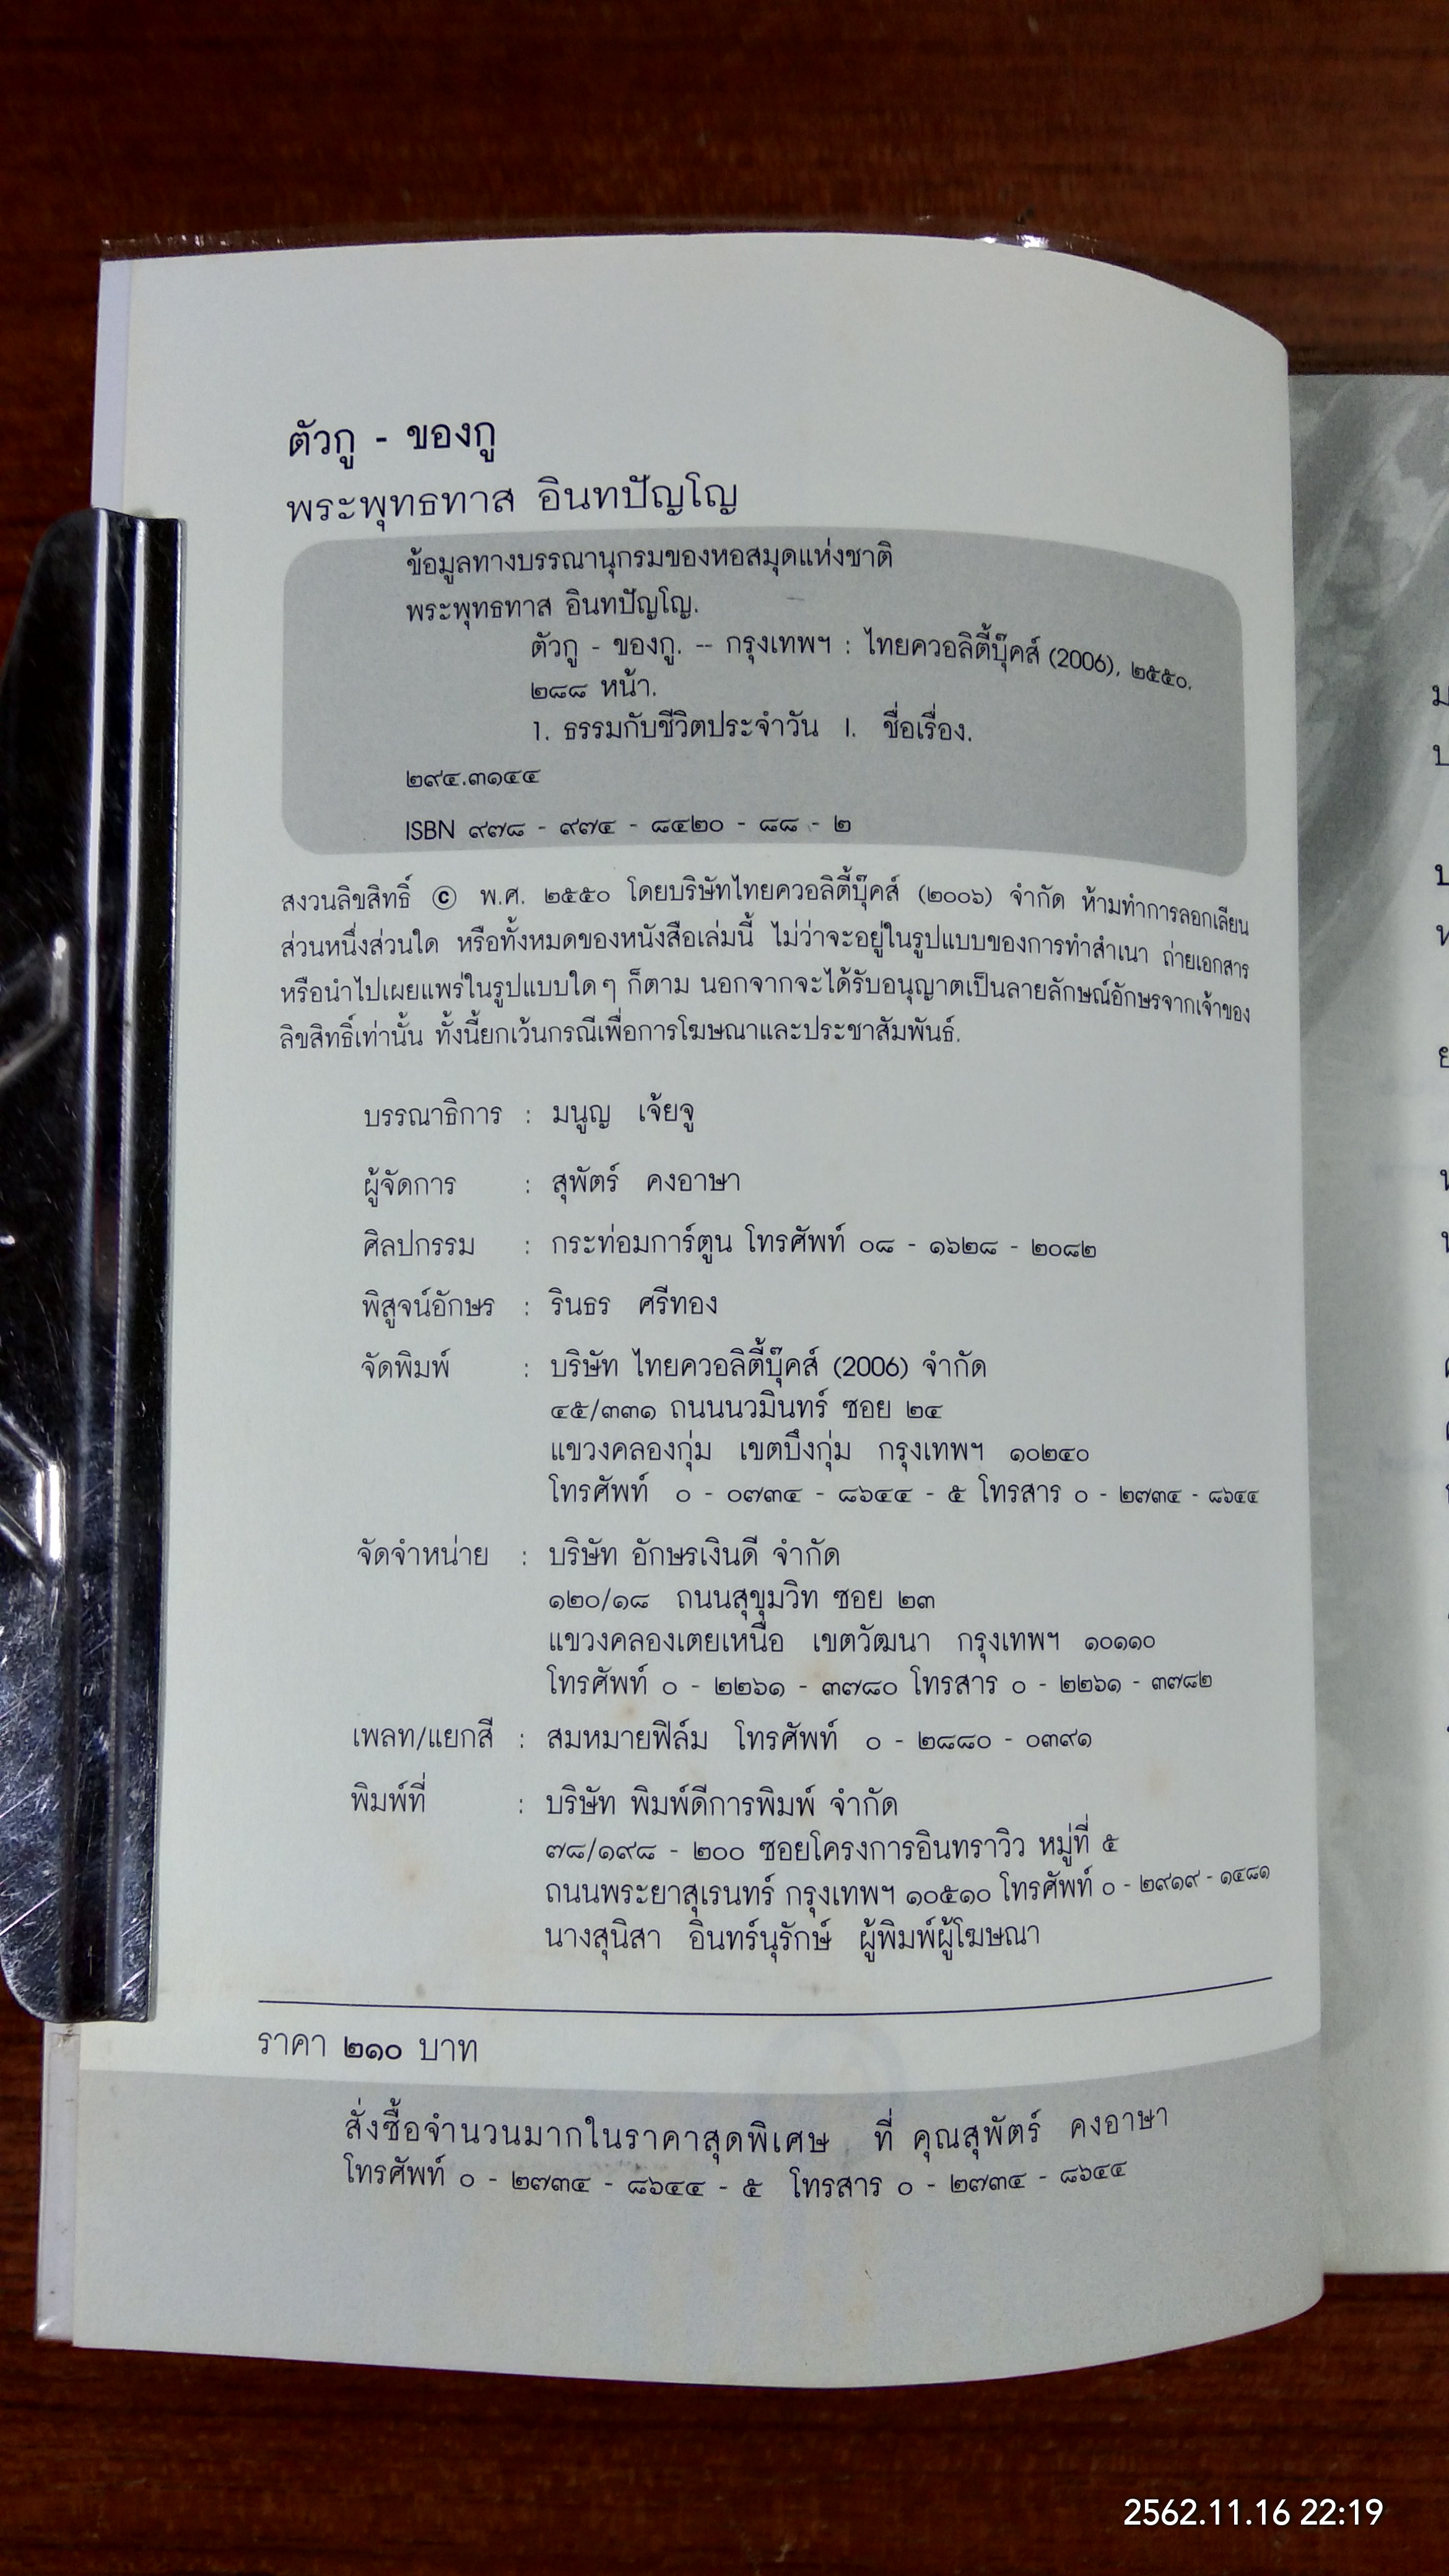 ตัวกู - ของกู
พระพุทธทาส อินทปัญโญ
ข้อมูลทางบรรณานุกรมของหอสมุดแห่งชาติ
พระพุทธทาส อินทปัญโญ.
ตัวกู - ของกู. -- กรุงเทพฯ : ไทยควอลิตี้บุ๊คส์ (2006), ๒๕๕๐.
๒๘๘ หน้า.
1. ธรรมกับชีวิตประจำวัน I. ชื่อเรื่อง.
๒๙๔.๓๑๔๔
ISBN ๙๗๘ - ๙๗๔ - ๘๔๒๐ - ๘๘ - ๒
สงวนลิขสิทธิ์ © พ.ศ. ๒๕๕๐ โดยบริษัทไทยควอลิตี้บุ๊คส์ (๒๐๐๖) จำกัด ห้ามทำการลอกเลียน
ส่วนหนึ่งส่วนใด หรือทั้งหมดของหนังสือเล่มนี้ ไม่ว่าจะอยู่ในรูปแบบของการทำสำเนา ถ่ายเอกสาร
หรือนำไปเผยแพร่ในรูปแบบใดๆ ก็ตาม นอกจากจะได้รับอนุญาตเป็นลายลักษณ์อักษรจากเจ้าของ
ลิขสิทธิ์เท่านั้น ทั้งนี้ยกเว้นกรณีเพื่อการโฆษณาและประชาสัมพันธ์.
บรรณาธิการ : มนูญ เจ้ยจู
ผู้จัดการ : สุพัตร์ คงอาษา
ศิลปกรรม : กระท่อมการ์ตูน โทรศัพท์ ๐๘ - ๑๖๒๘ - ๒๐๘๒
พิสูจน์อักษร : รินธร ศรีทอง
จัดพิมพ์ : บริษัท ไทยควอลิตี้บุ๊คส์ (2006) จำกัด
๔๕/๓๓๑ ถนนนวมินทร์ ซอย ๒๔
แขวงคลองกุ่ม เขตบึงกุ่ม กรุงเทพฯ ๑๐๒๔๐
โทรศัพท์ ๐ - ๐๗๓๔ - ๘๖๔๔ - ๕ โทรสาร ๐ - ๒๗๓๔ - ๘๖๔๔
จัดจำหน่าย : บริษัท อักษรเงินดี จำกัด
๑๒๐/๑๘ ถนนสุขุมวิท ซอย ๒๓
แขวงคลองเตยเหนือ เขตวัฒนา กรุงเทพฯ ๑๐๑๑๐
โทรศัพท์ ๐ - ๒๒๖๑ - ๓๗๘๐ โทรสาร ๐ - ๒๒๖๑ - ๓๗๘๒
เพลท/แยกสี : สมหมายฟิล์ม โทรศัพท์ ๐ - ๒๘๘๐ - ๐๓๙๑
พิมพ์ที่ : บริษัท พิมพ์ดีการพิมพ์ จำกัด
๗๘/๑๙๘ - ๒๐๐ ซอยโครงการอินทราวิว หมู่ที่ ๕
ถนนพระยาสุเรนทร์ กรุงเทพฯ ๑๐๕๑๐ โทรศัพท์ ๐ - ๒๙๑๙ - ๑๔๘๑
นางสุนิสา อินทร์นุรักษ์ ผู้พิมพ์ผู้โฆษณา
ราคา ๒๑๐ บาท
สั่งซื้อจำนวนมากในราคาสุดพิเศษ ที่ คุณสุพัตร์ คงอาษา
โทรศัพท์ ๐ - ๒๗๓๔ - ๘๖๔๔ - ๕ โทรสาร ๐ - ๒๗๓๔ - ๘๖๔๔
2562.11.16 22:19